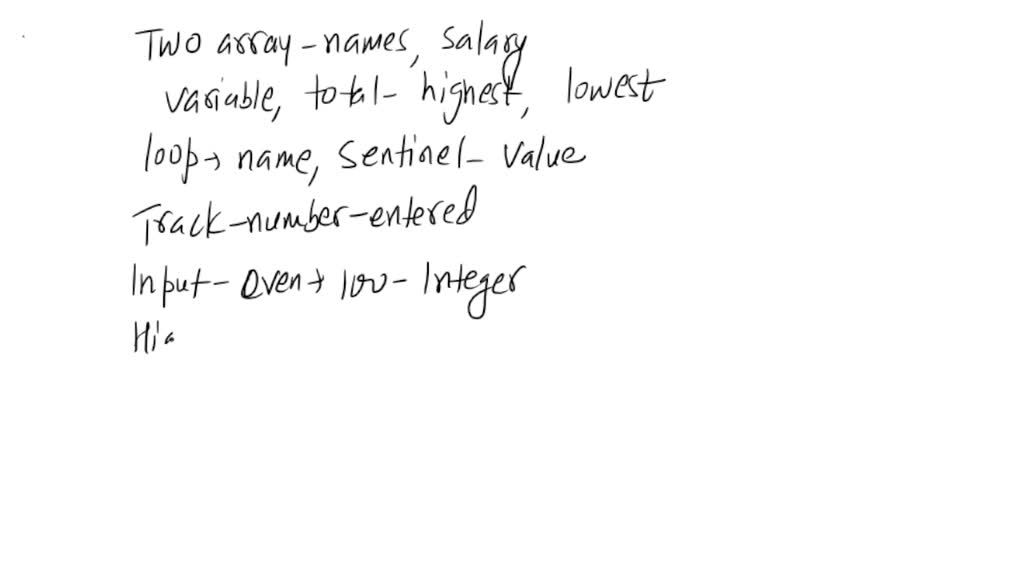 Two array - names, salary
variable, total - highest, lowest
loop → name, sentinel - value
Track - number - entered
Input - even → 100 - Integer